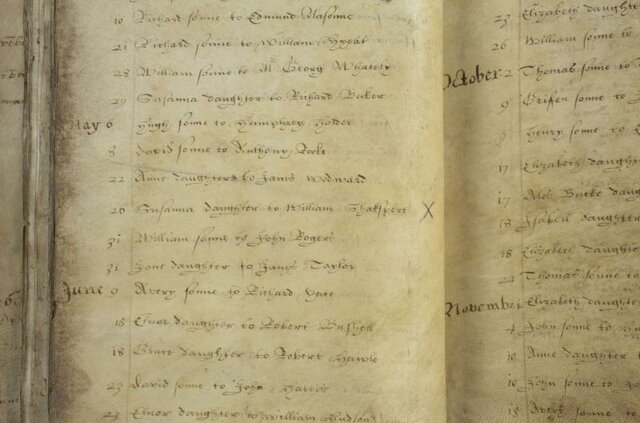 10 Richard sonne to Edmund
21 Richard sonne to William Hyeat
28 William sonne to Mr Georg Whately
29 Susanna daughter to Richard Baker
May 6 Hugh sonne to Humphrey Holder
8 David sonne to Anthony Poole
22 Anne daughter to James Wodward
26 Susanna daughter to William Shakspere X
31 William sonne to John Rogers
31 Jone daughter to James Taylor
June 9 Avery sonne to Richard Yate
15 Elnor daughter to Robert Bushell
18 Grace daughter to Robert Hawle
23 David sonne to John Harris
23 Elnor daughter to William Hudson
Elizabeth daughte
26 William sonne to
October 2 Thomas sonne to
9 Grifen sonne to
Henry sonne to
17 Elizabeth daugh
17 Ales daughter
18 Isabell daughter
18 Elizabeth daught
24 Thomas sonne to
November Elizabeth daughte
4 John sonne to
10 Anne daughter
10 John sonne to
15 Avery sonne to